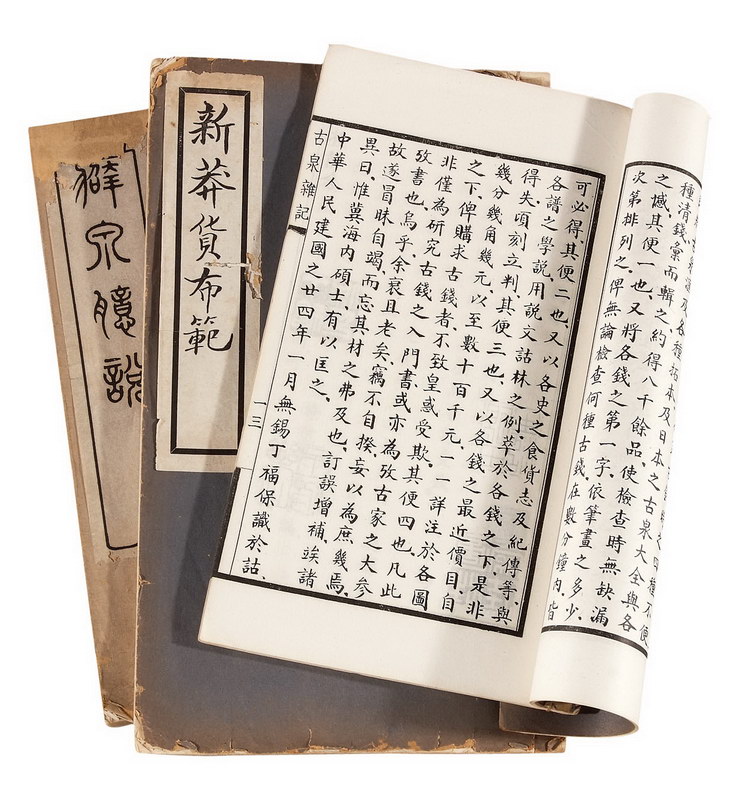 種拓本及日本之古泉大全與各
種清錢、彙而輯之、約得八千餘品、使檢查時無缺漏
之憾、其便一也、又將各錢之第一字、依筆畫之多少、
次第排列之、俾無論檢查何種古錢、在數分鐘內、皆
可必得、其便二也、又以各史之食貨志及紀傳等、與
各譜之學說、用說文詁林之例、萃於各錢之下、是非
得失、頃刻立判、其便三也、又以各錢之最近價目、自
幾分幾角幾元、以至數十百千元、一一詳注於各圖
之下、俾購求古錢者、不致皇惑受欺、其便四也、凡此
非僅為研究古錢之入門書、或亦為攷古家之大參
攷書也、烏乎、余衰且老矣、竊不自揆、妄以為庶幾焉、
故遂冒昧自竭、而忘其材之弗及也、訂誤增補、竢諸
異日、惟冀海内碩士、有以匡之、
中華人民建國之廿四年一月無錫丁福保識於詁、
古泉雜記 一三
新莽貨布範
癖泉臆說